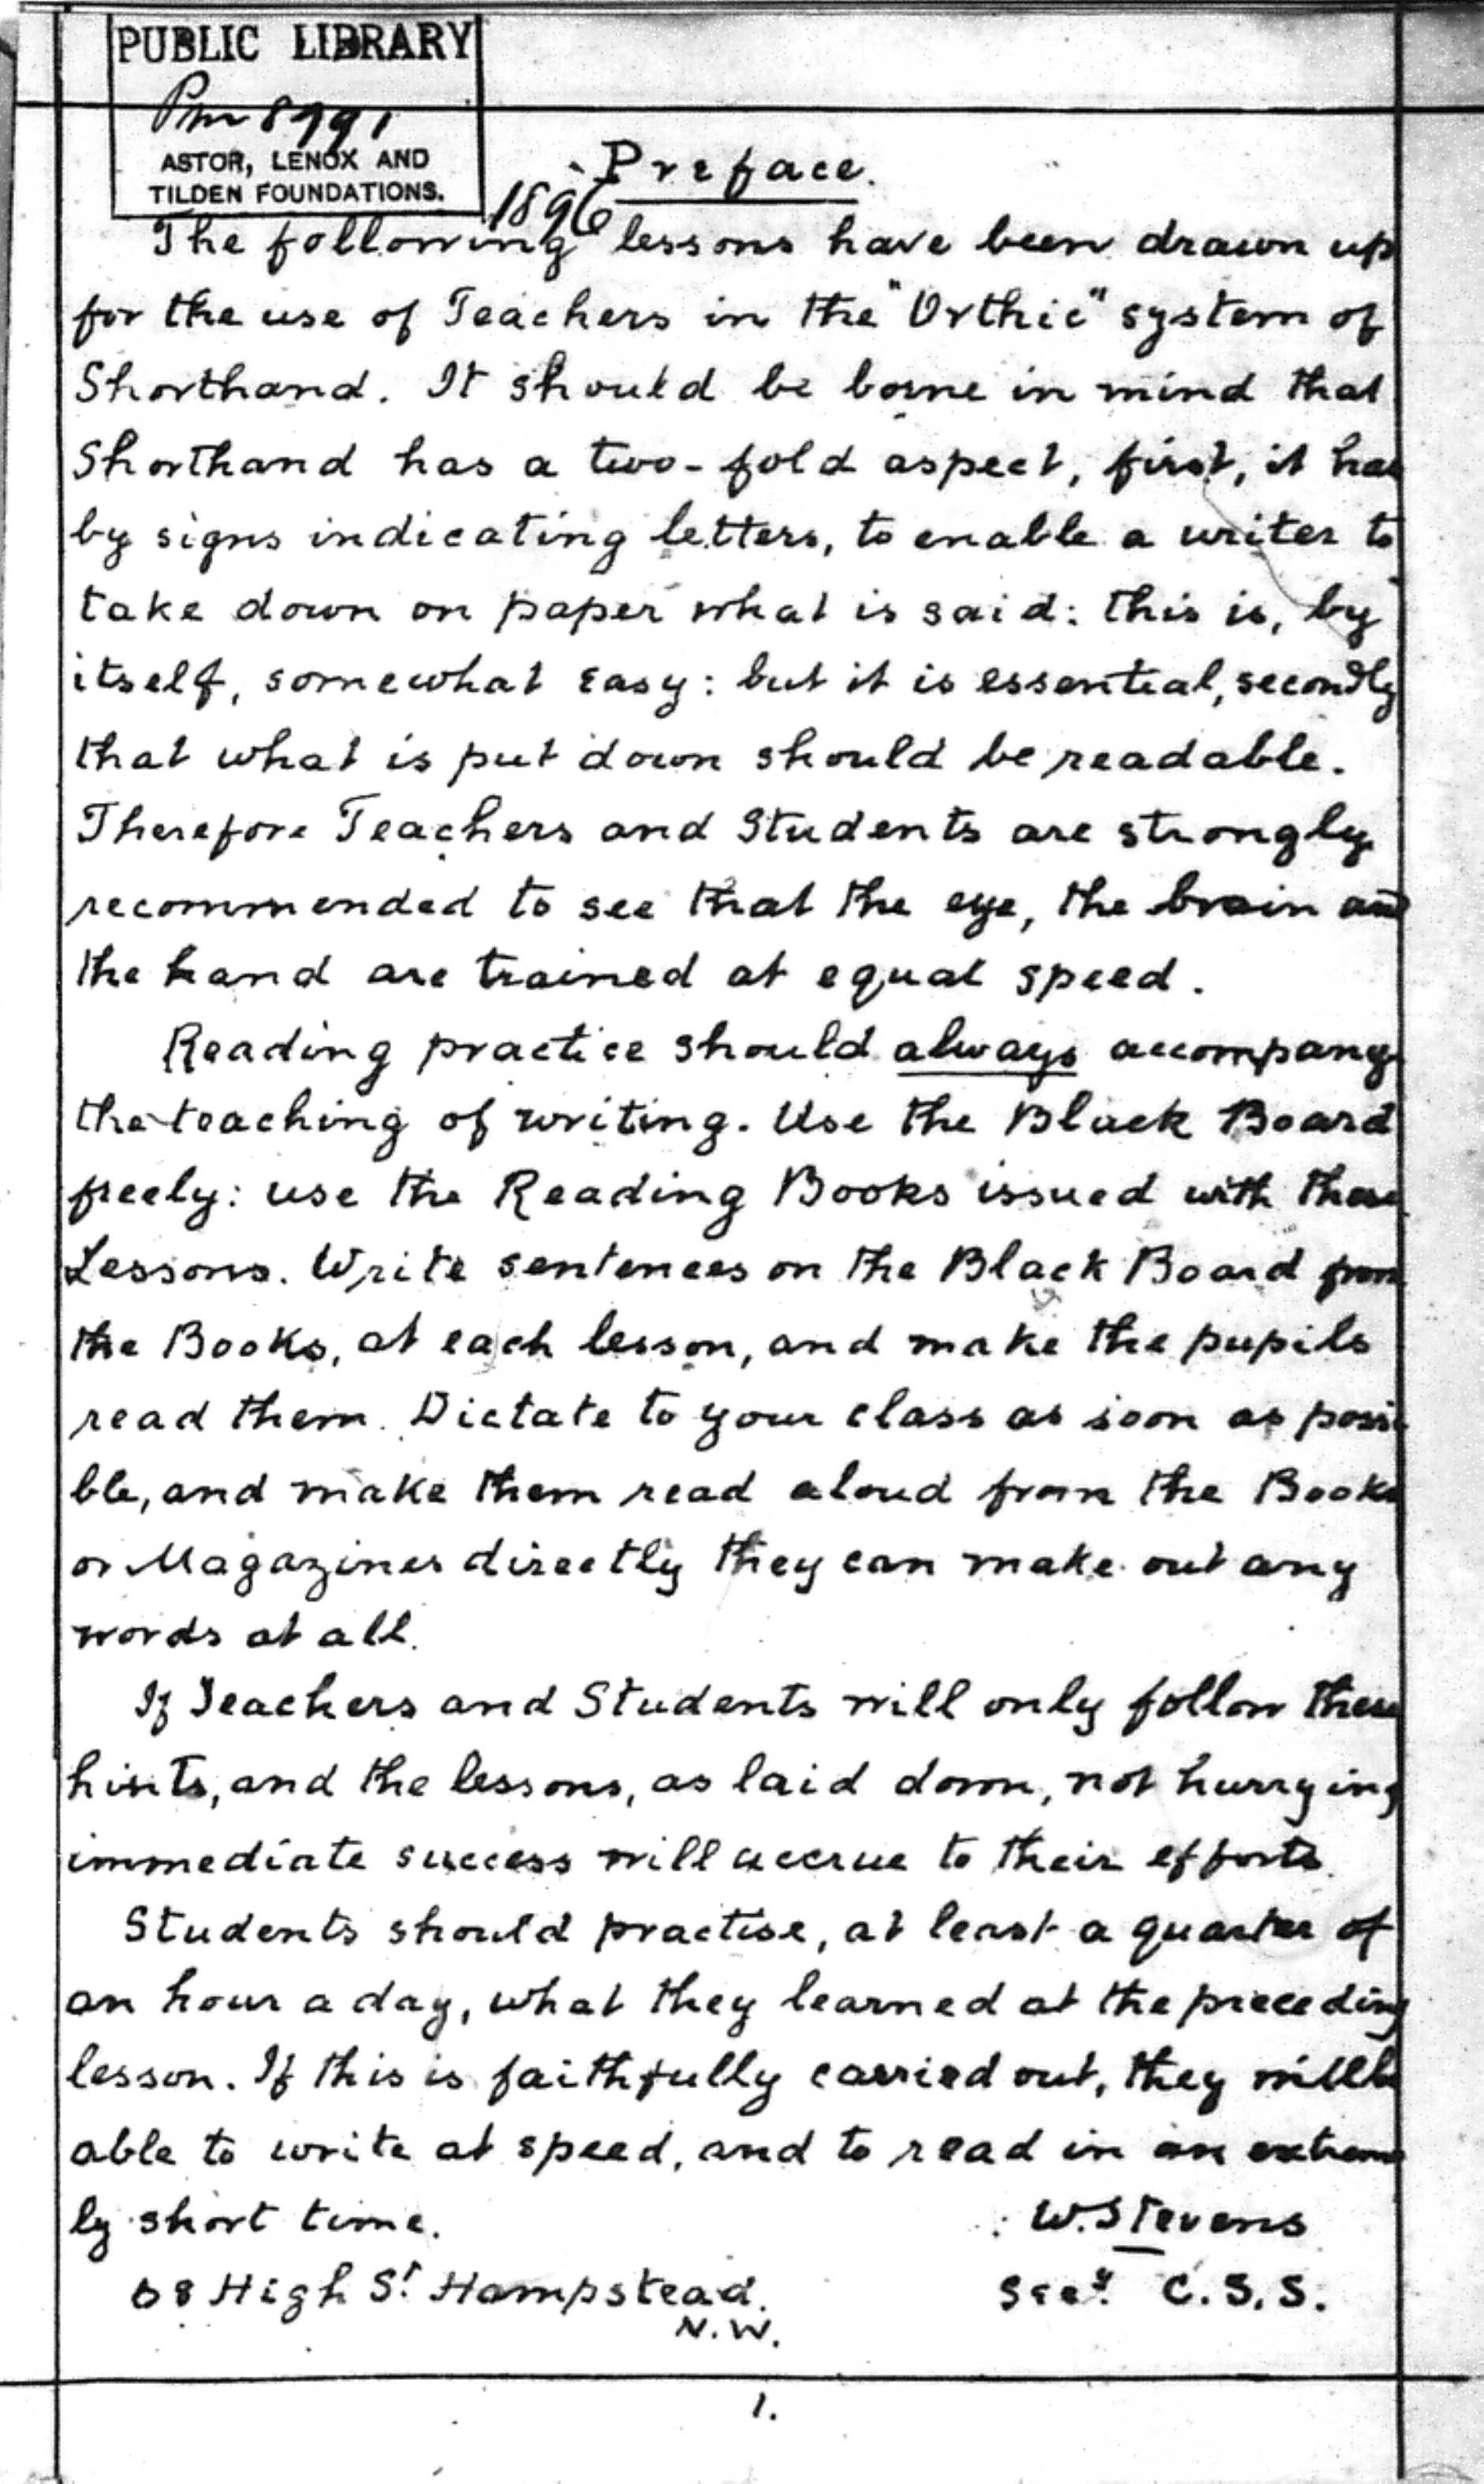 PUBLIC LIBRARY
Pm 8991
ASTOR, LENOX AND
TILDEN FOUNDATIONS.
1896
Preface.
The following lessons have been drawn up
for the use of Teachers in the "Orthic" system of
Shorthand. It should be borne in mind that
Shorthand has a two-fold aspect, first, it has
by signs indicating letters, to enable a writer to
take down on paper what is said: this is, by
itself, somewhat easy: but it is essential, secondly
that what is put down should be readable.
Therefore Teachers and Students are strongly
recommended to see that the eye, the brain and
the hand are trained at equal speed.
Reading practice should always accompany
the teaching of writing. Use the Black Board
freely: use the Reading Books issued with these
Lessons. Write sentences on the Black Board from
the Books, at each lesson, and make the pupils
read them. Dictate to your class as soon as possi
ble, and make them read aloud from the Books
or Magazines directly they can make out any
words at all.
If Teachers and Students will only follow these
hints, and the lessons, as laid down, not hurrying
immediate success will accrue to their efforts.
Students should practise, at least a quarter of
an hour a day, what they learned at the preceding
lesson. If this is faithfully carried out, they will be
able to write at speed, and to read in an extreme
ly short time.
W. Stevens
68 High St. Hampstead. Secy. C.S.S.
N.W.
1.